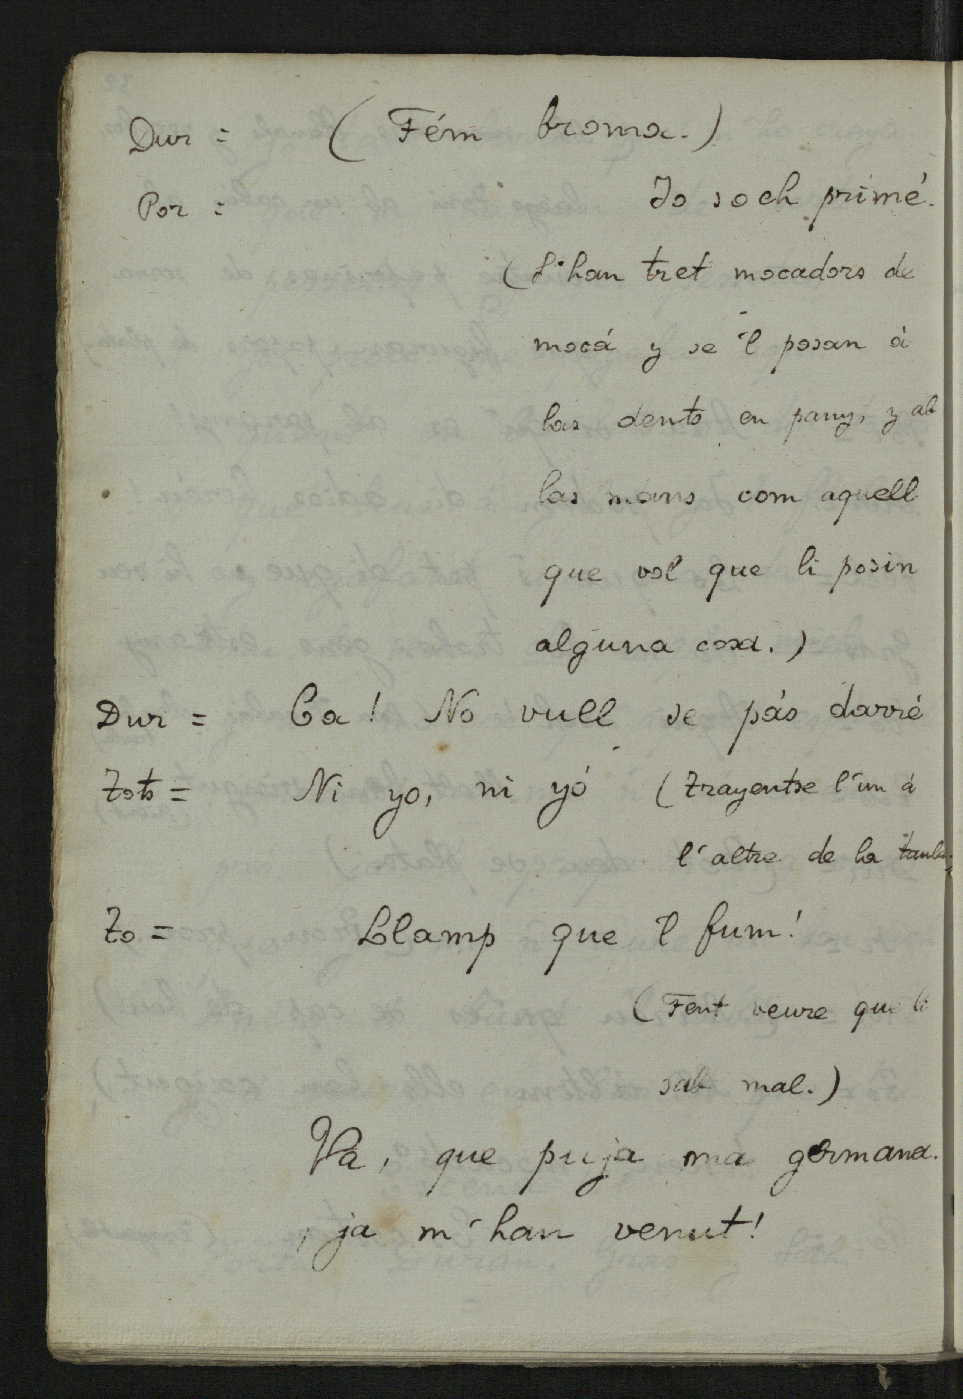 Dur = (Fém broma.)
Por = Jo soch primé.
(S'han tret mocadors de
mocá y se 'l posan á
las dents en pany, y ab
las mans com aquell
que vol que li posin
alguna cosa.)
Dur = Ca! No vull se pás darré
Tots = Ni yo, ni yó (Trayentse l'un á
l'altre de la taula
To = Llamp que 'l fum!
(Fent veure que li
sab mal.)
Va, que puja ma germana.
, ja m'han venut!